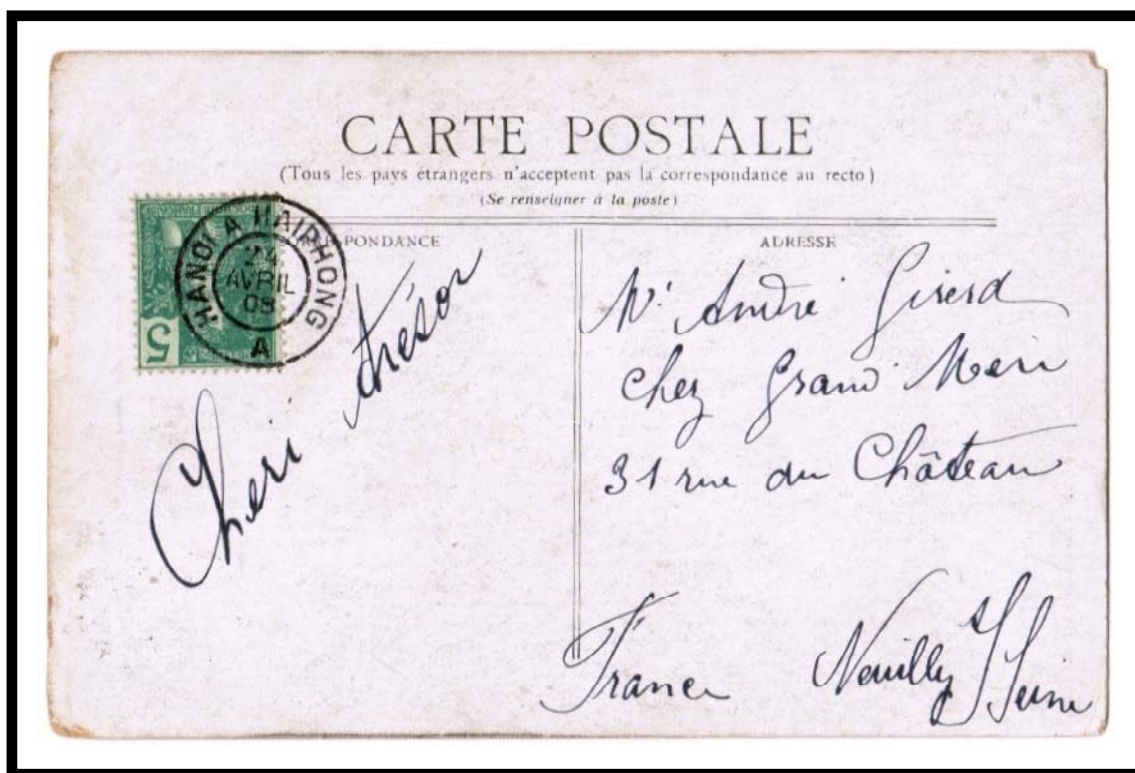 CARTE POSTALE
(Tous les pays étrangers n'acceptent pas la correspondance au recto)
(Se renseigner à la poste)
CORRESPONDANCE
ADRESSE
HANOI A HAIPHONG
AVRIL
A
5
Cheri trésor
Mr André Girerd
chez Grand Mère
31 rue du Château
France Neuilly s/Seine